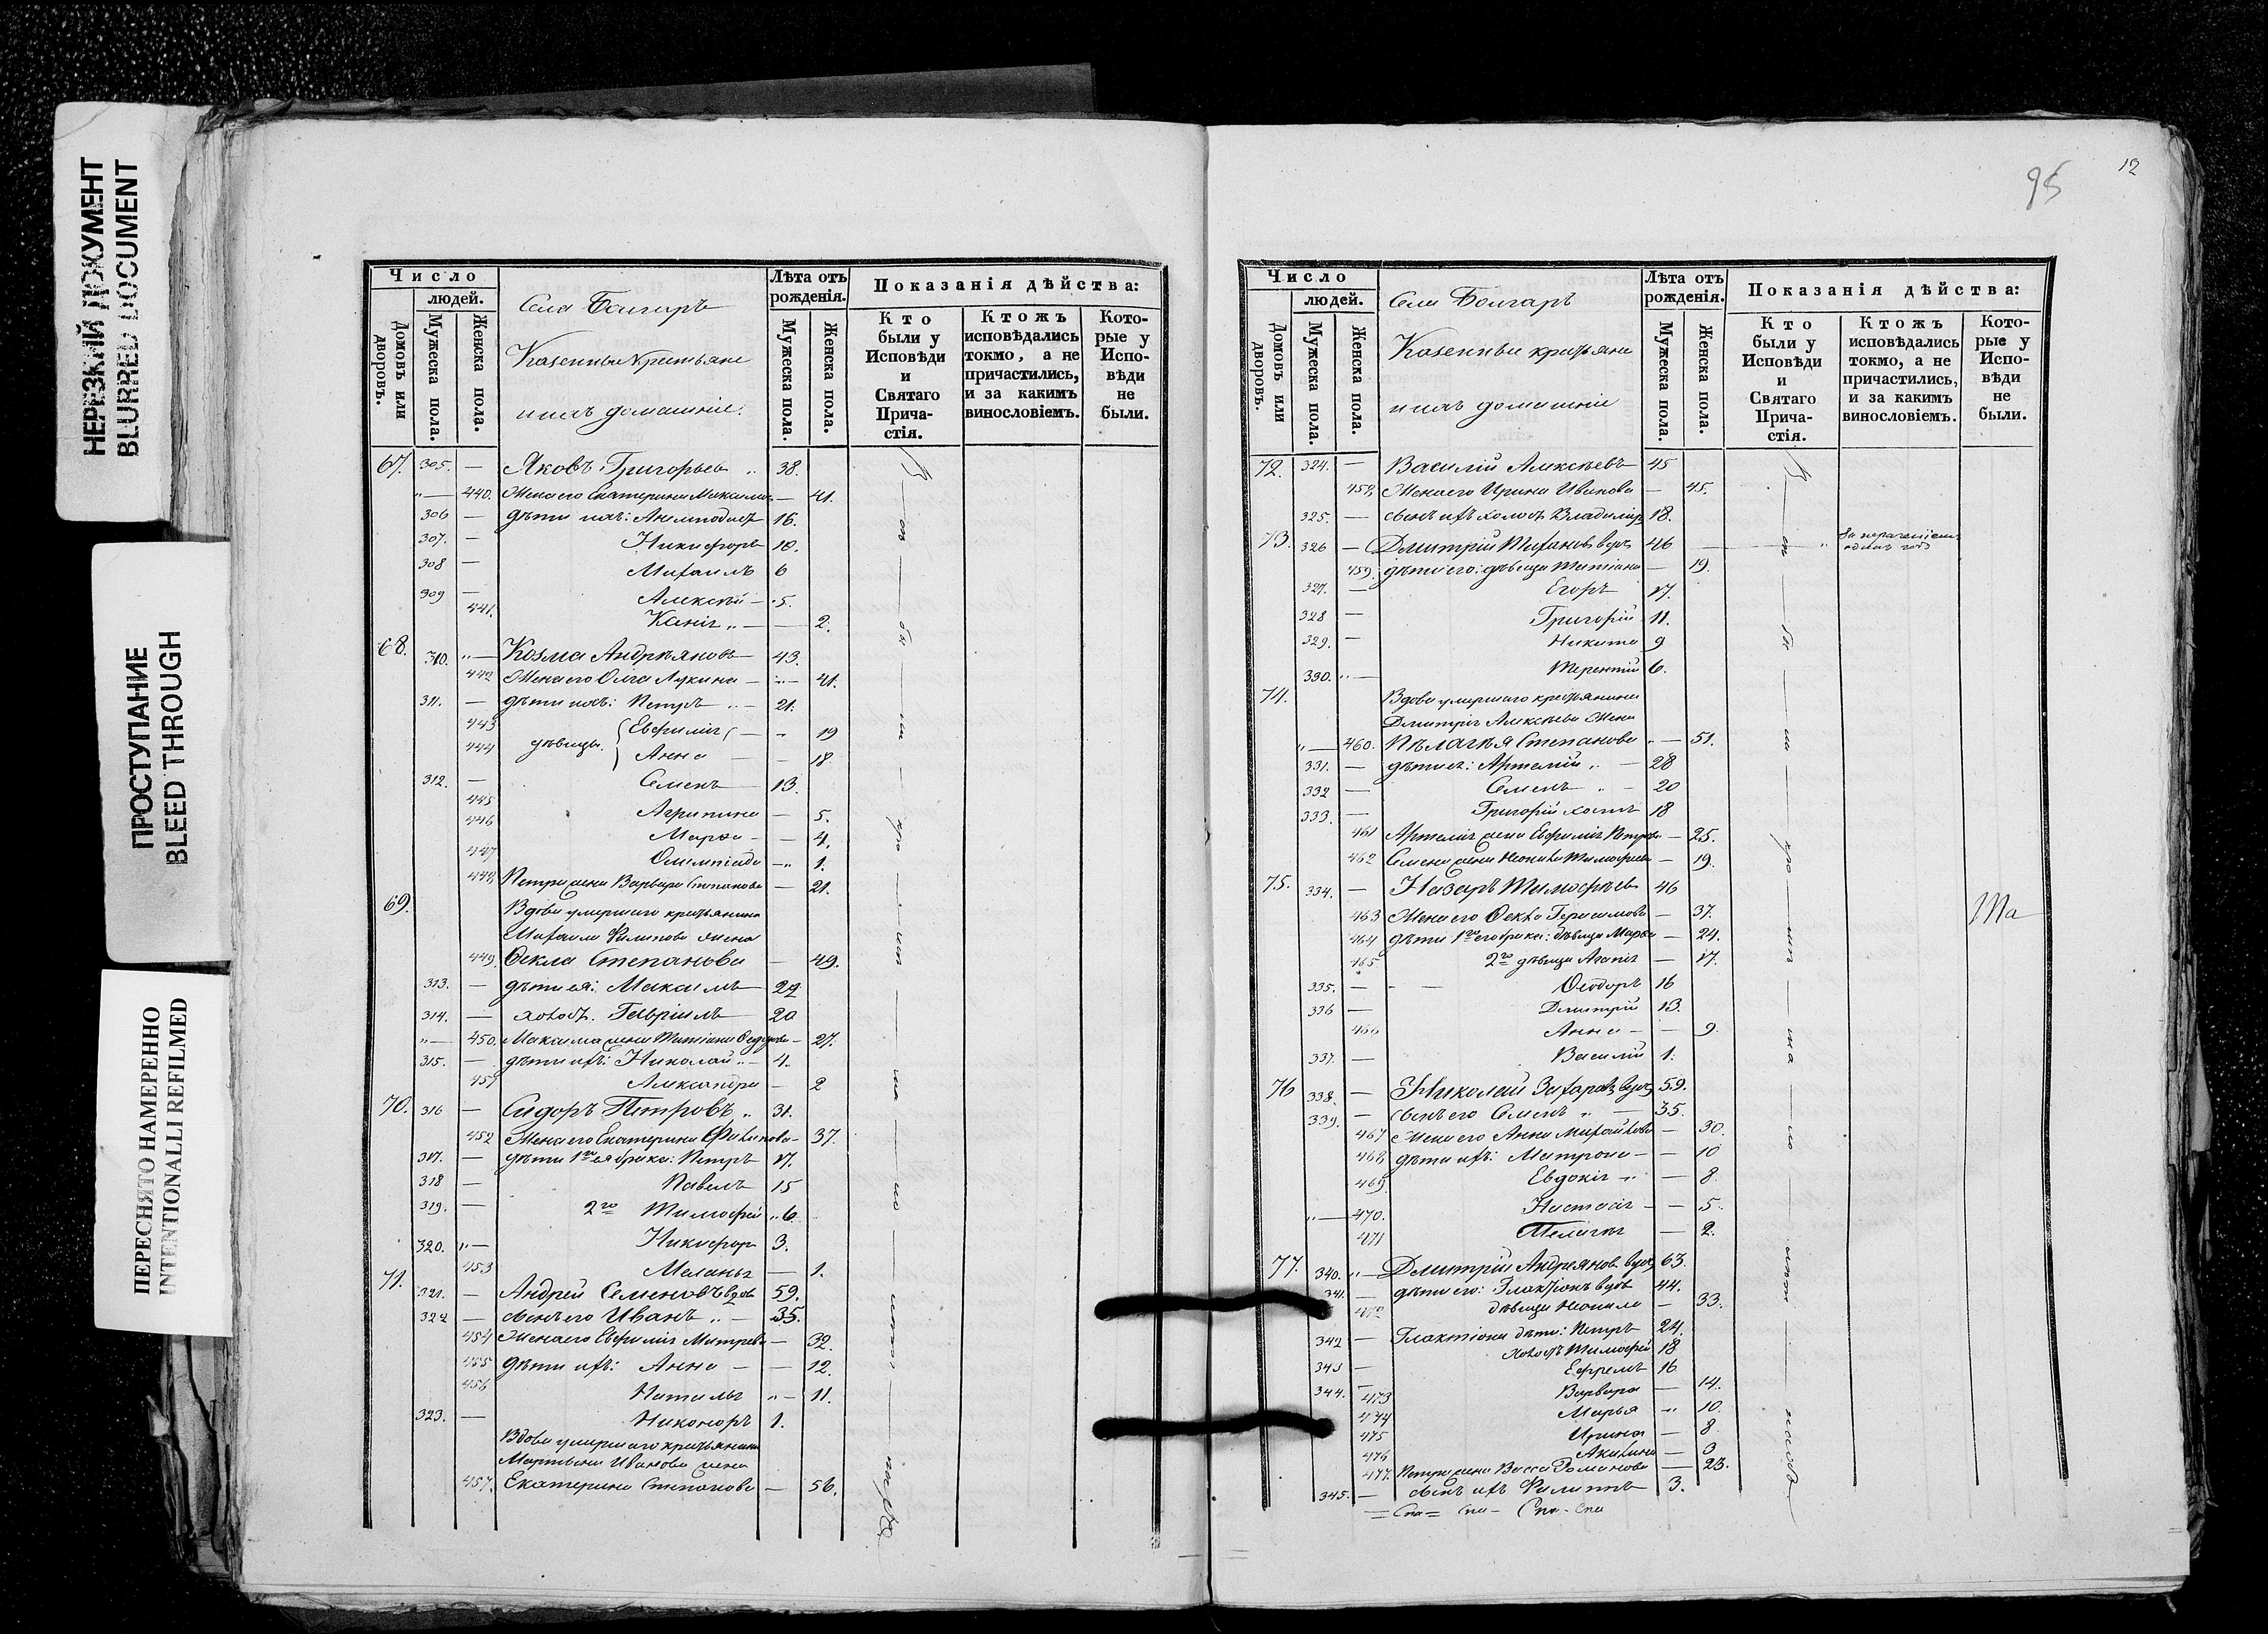 НЕРЕЗКИЙ ДОКУМЕНТ
BLURRED DOCUMENT
ПРОСТУПАНИЕ
BLEED THROUGH
ПЕРЕСНЯТО НАМЕРЕННО
INTENTIONALLI REFILMED
Число
людей.
Домовъ или дворовъ.
Мужеска пола.
Женска пола.
Села Болгаръ
Казенные Крестьяне
и ихъ домашніе.
Лѣта отъ рожденія.
Мужеска пола.
Женска пола.
Показанія дѣйства:
Кто были у Исповѣди и Святаго Прича-стія.
Ктожъ исповѣдались токмо, а не причастились, и за какимъ винословіемъ.
Кото-рые у Испо-вѣди не были.
67. 305. — Яковъ Григорьевъ 38.
440. Жена его Екатерина 41.
306 — дѣти ихъ: 16.
307. — Никифоръ 10.
308 — Михаилъ 6
309 — Алексѣй — 5.
441. 2.
68. 310. — Козма Андреяновъ — 43.
442 Жена его Олга Лукина — 41.
311. — дѣти ихъ: Петръ — 21.
443 дѣвицы. Евфимія — 19
444 Анна — 18
312. — Семенъ 13.
445 Агрипина — 5.
446 Марѳа — 4.
447 Олимпіада — 1.
448 Петра жена Варвара Степанова — 21.
69. Вдова умершаго крестьянина
Михаила Филипова жена
449. Ѳекла Степанова — 49.
313. — дѣти ея: Максимъ 29
314. — холост. Гавріилъ 20
450. Максима жена Татіана — 27.
315. — дѣти ихъ: Николай — 4.
451 Александра — 2
70. 316 — Сидоръ Петровъ 31.
452 Жена его Екатерина — 37.
317. — дѣти 1го ея брака: Петръ 17.
318 — Павелъ 15
319. — 2го Тимофей 6
320. — Никифор 3.
453 Меланья — 1.
71. 321. — Андрей Семеновъ вдов 59.
322 — сынъ его Иванъ — 35.
454 Жена его Евфимія — 32.
455 дѣти ихъ: Анна — 12.
456 Наталья — 11.
323. — Никоноръ 1.
Вдова умершаго крестьянина
Мартына Иванова жена
457. Екатерина Степанова — 56.
95
12
Число
людей.
Домовъ или дворовъ.
Мужеска пола.
Женска пола.
Села Болгаръ
Казенные крестьяне
и ихъ домашніе
Лѣта отъ рожденія.
Мужеска пола.
Женска пола.
Показанія дѣйства:
Кто были у Исповѣди и Святаго Прича-стія.
Ктожъ исповѣдались токмо, а не причастились, и за какимъ винословіемъ.
Кото-рые у Испо-вѣди не были.
72. 324. — Василій Алексѣевъ 45
458. Жена его Ирина Иванова — 45.
325. — сынъ ихъ холост Владиміръ 18.
73. 326 — Дмитрій 46
459. дѣти его: дѣвица Татіана — 19.
327. — Егоръ 17.
328 — Григорій 11.
329. — Никита 9
330. — Терентій 6.
74. Вдова умершаго крестьянина
Дмитрія Алексѣева жена
460. Пѣлагѣя Степанова — 51.
331. — дѣти ея: Артемій — 28
332 — Семенъ — 20
333. — Григорій холост 18
461 Артемія жена Евфимія Петрова — 25.
462 Семена жена Неонила Тимофеева — 19.
75. 334. — Назаръ Тимофѣевъ 46
463 Жена его Ѳекла Герасимова — 37.
464 дѣти 1го его брака: дѣвица Марѳа — 24.
465 2го дѣвица Агапія — 17.
335. — Ѳеодоръ 16
336 — Дмитрій 13.
466 Анна — 9.
337. — Василій 1.
76 338. — Николай Захаровъ вдов 59.
339. — сынъ его Семенъ — 35.
467 Жена его Анна Михайлова — 30.
468 дѣти ихъ: Матрона — 10
469 Евдокія — 8.
470. Настасія — 5.
471 Пелагія — 2.
77. 340. — Дмитрій Андреянов вдов 63.
341. — дѣти его: Галактіонъ вдов 44.
472 дѣвица Неонила — 33.
342 — Галактіона дѣти: Петръ 24.
холост Тимофей 18
343 — Ефремъ 16
344. 473 Варвара — 14.
474 Марья — 10.
475 Ирина — 8.
476 Акилина — 3
477. Петра жена Васса Романова — 23.
345. — сынъ ихъ Филиппъ 3.